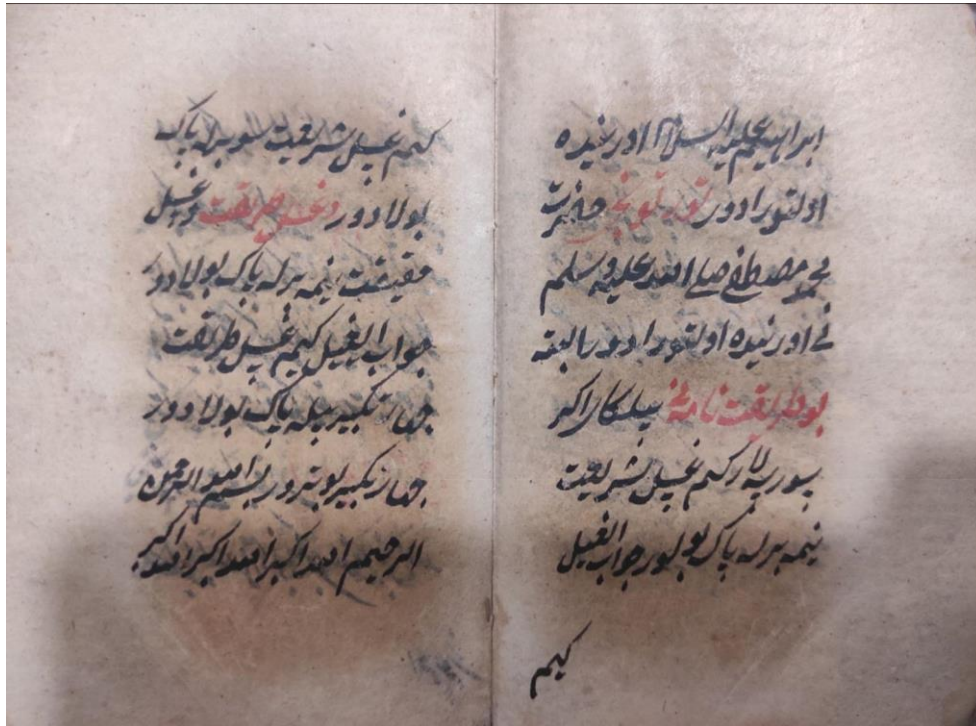 ابراهیم علیه السلام اورنیده
اولتورادور تورتونجی حضرت
محمد مصطفی صلی الله علیه وسلم
نی اورنیده اولتورادور البته
بو طریقت نامه نی اکر
سورسه لار کیم غسل شریعت
نیمه برله پاک بولور جواب ایغیل
کیم
کیم غسل شریعت سو برله پاک
بولادور و غسل طریقت و غسل
حقیقت نیمه برله پاک بولادور
جواب ایغیل کیم غسل طریقت
چهار تکبیر بیله پاک بولادور
چهار تکبیر بو تورور بسم الله الرحمن
الرحیم الله اکبر الله اکبر الله اکبر